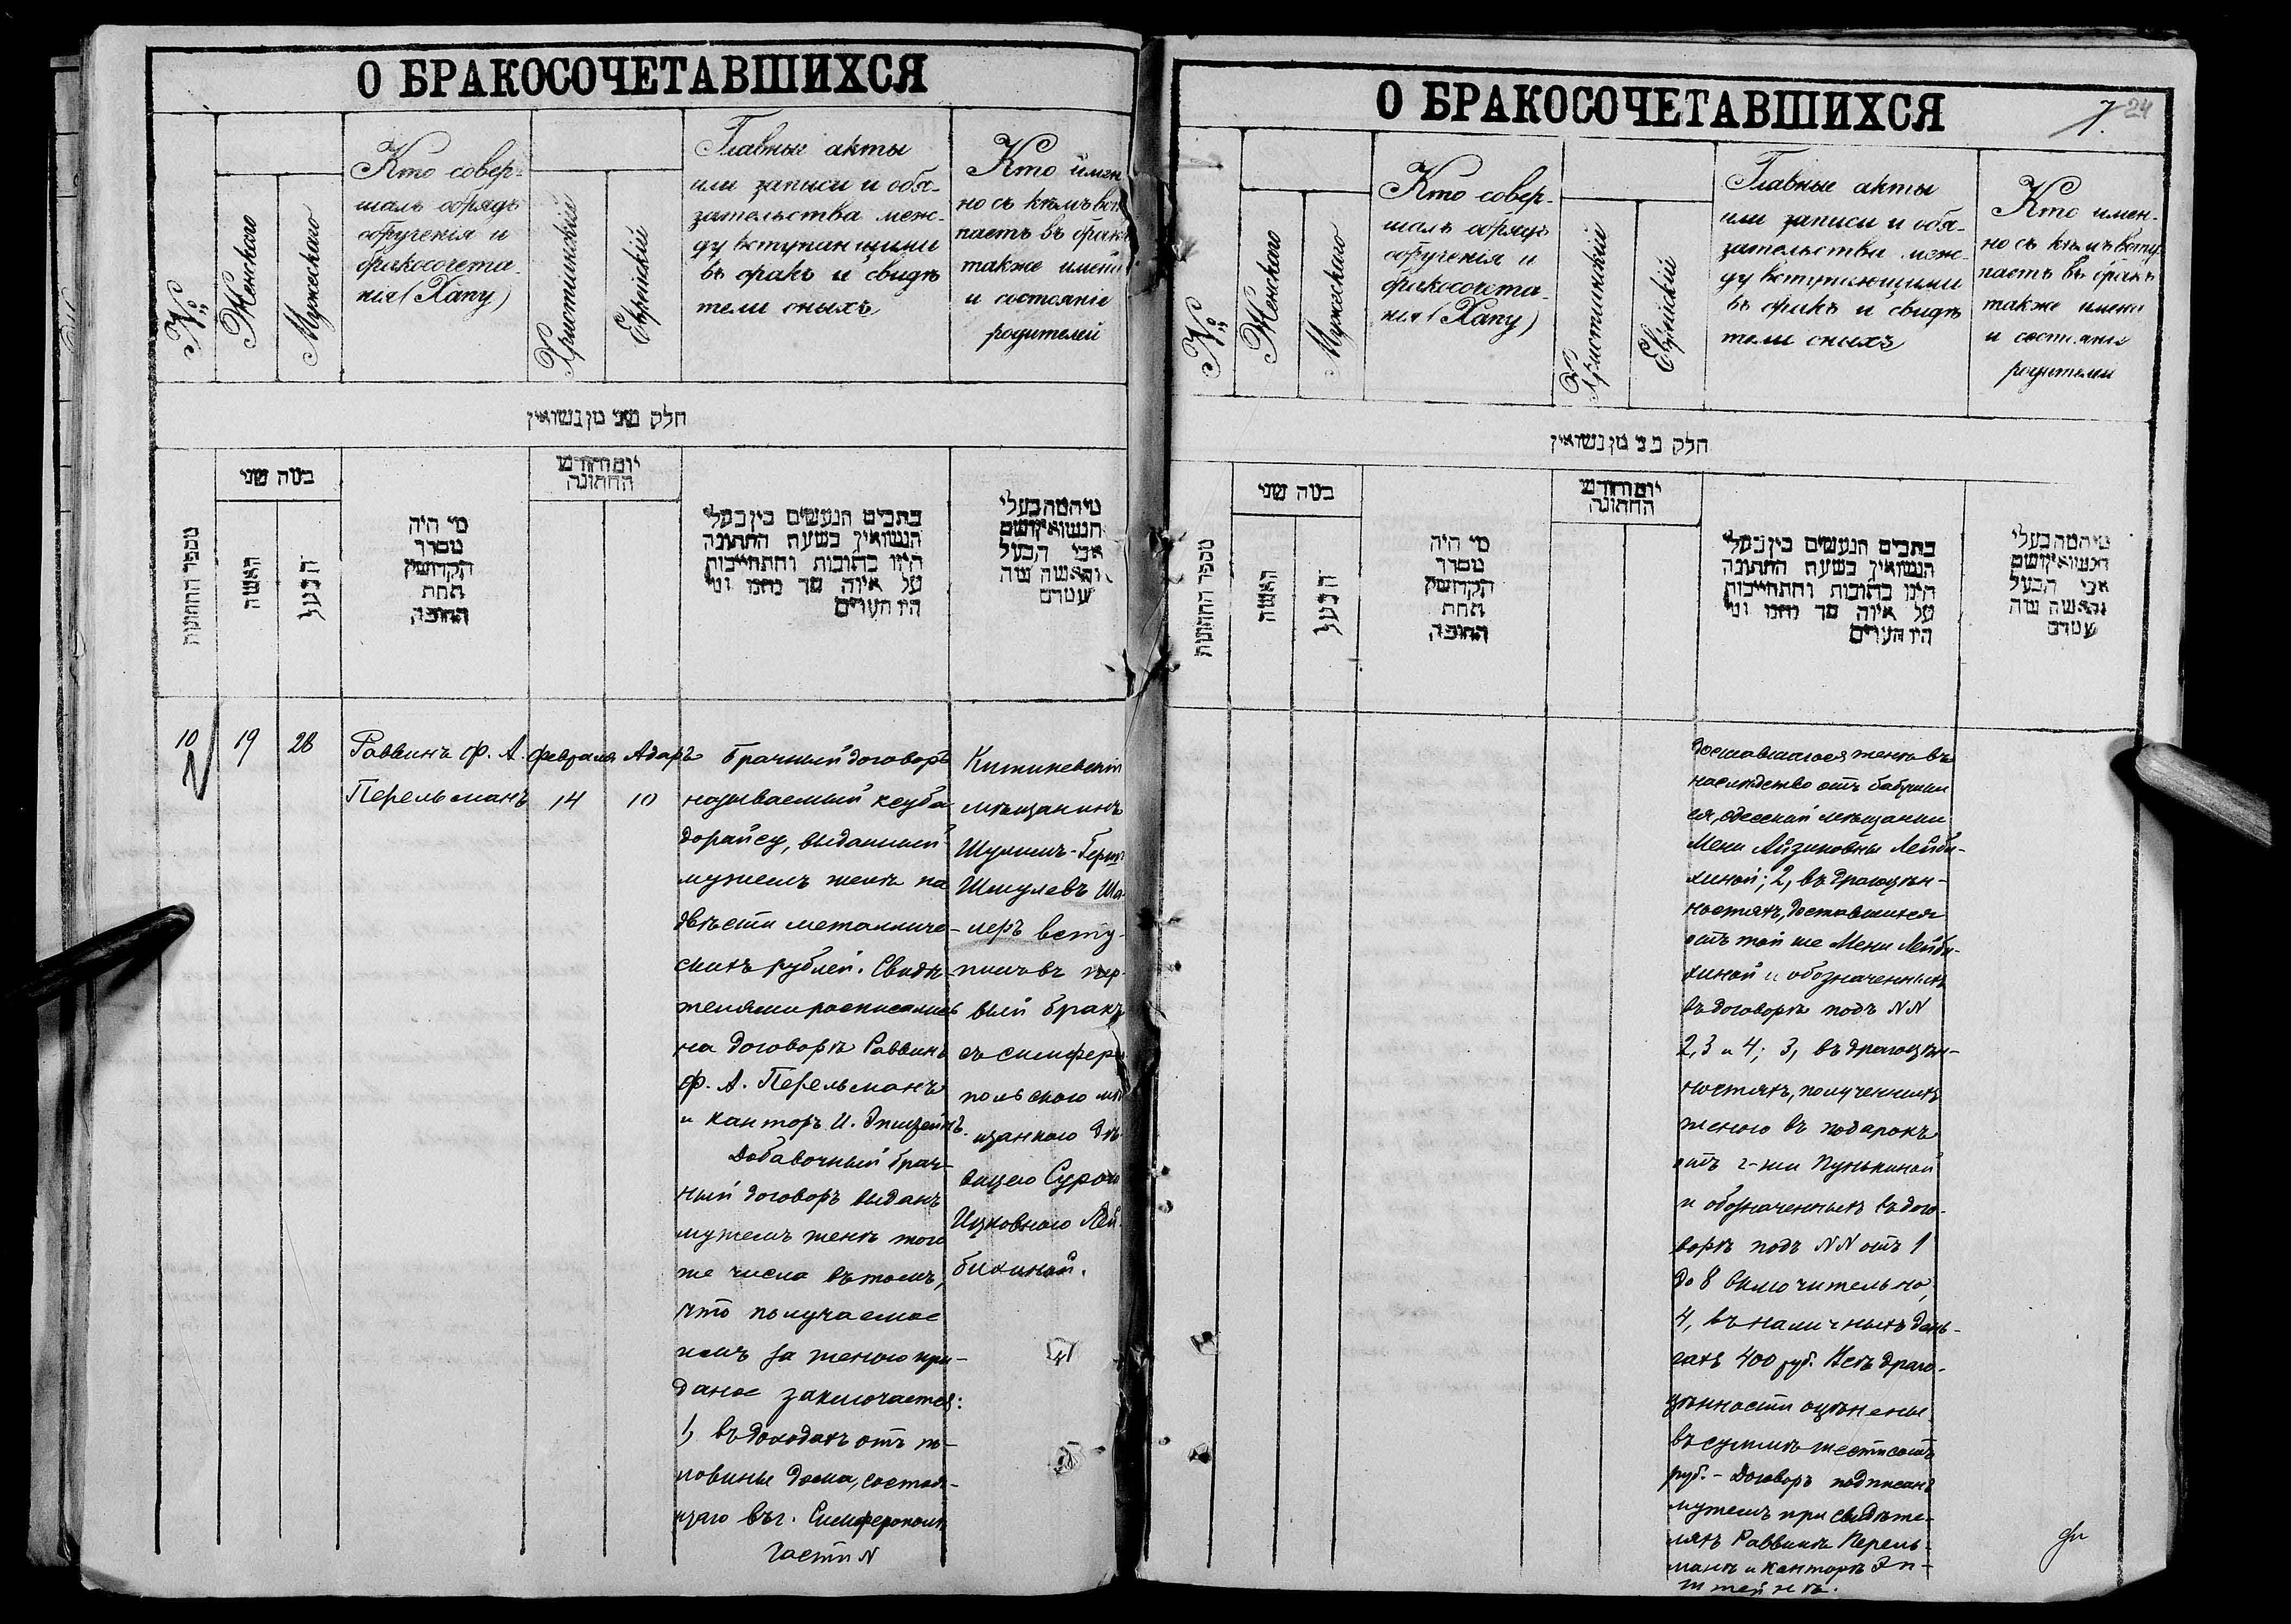 О БРАКОСОЧЕТАВШИХСЯ
№
Женскаго
Мужескаго
Кто совер-
шалъ обрядъ
обрученія и
бракосочета-
нія (Хапу)
Христіанскій
Еврейскій
Главные акты
или записи и обя-
зательства меж-
ду вступающими
въ бракъ и свидѣ
тели оныхъ
Кто имен
но съ кѣмъ всту
паетъ въ бракъ
также имена
и состояніе
родителей
חלק שני מן נשואין
מספר החתונות
כמה שני
האשה
הבעל
מי היה
מסדר
הקדושין
תחת
החופה
יום וחודש
החתונה
כתבים הנעשים בין בעלי
הנשואין בשעת החתונה
היינו כתובות והתחייבות
על איזה סך נתנו ומי
היו העדים
מי המה בעלי
הנשואין ושם
אבי הבעל
והאשה מה
עמדם
10 19 28
Раввинъ Ф. А.
Перельманъ
Февраля
14
Адаръ
10
Брачный договоръ
называемый ксуба
дорайсу, выданный
мужемъ женѣ на
двѣсти металличе-
скихъ рублей. Свидѣ-
телями расписались
на договорѣ Раввинъ
Ф. А. Перельманъ
и канторъ И. Эпштейнъ.
Добавочный брач-
ный договоръ выданъ
мужемъ женѣ того
же числа въ томъ,
что получаемое
имъ за женою при-
даное заключается:
1, въ доходахъ отъ по-
ловины дома, состоя-
щаго въ г. Симферополѣ
части N
Кишиневскій
мѣщанинъ
Шулимъ-Герш
Шмулевъ Ша-
меръ всту-
пилъ въ пер-
вый бракъ
съ симферо
польскою мѣ
щанкою дѣ-
вицею Сурою
Ицковною Лей-
бихиной.
О БРАКОСОЧЕТАВШИХСЯ
7. 24
№
Женскаго
Мужескаго
Кто совер-
шалъ обрядъ
обрученія и
бракосочета-
нія (Хапу)
Христіанскій
Еврейскій
Главные акты
или записи и обя-
зательства меж-
ду вступающими
въ бракъ и свидѣ
тели оныхъ
Кто имен-
но съ кѣмъ всту
паетъ въ бракъ
также имена
и состояніе
родителей
חלק שני מן נשואין
מספר החתונות
כמה שני
האשה
הבעל
מי היה
מסדר
הקדושין
תחת
החופה
יום וחודש
החתונה
כתבים הנעשים בין בעלי
הנשואין בשעת החתונה
היינו כתובות והתחייבות
על איזה סך נתנו ומי
היו העדים
מי המה בעלי
הנשואין ושם
אבי הבעל
והאשה מה
עמדם
доставшагося женѣ въ
наслѣдство отъ бабушки
ея, одесской мѣщанки
Мени Айзиковны Лейби-
хиной; 2, въ драгоцѣн-
ностяхъ, доставшихся
отъ той же Мени Лейби-
хиной и обозначенныхъ
въ договорѣ подъ NN
2, 3 и 4; 3, въ драгоцѣн-
ностяхъ, полученныхъ
женою въ подарокъ
отъ г-жи Пунькиной
и обозначенныхъ въ дого-
ворѣ подъ NN отъ 1
до 8 включительно,
4, въ наличныхъ день-
гахъ 400 руб. Всѣ драго-
цѣнности оцѣнены
въ суммѣ шестисотъ
руб. - Договоръ подписанъ
мужемъ при свидѣте-
ляхъ Раввинѣ Перель-
манѣ и канторѣ Эп-
штейнѣ.